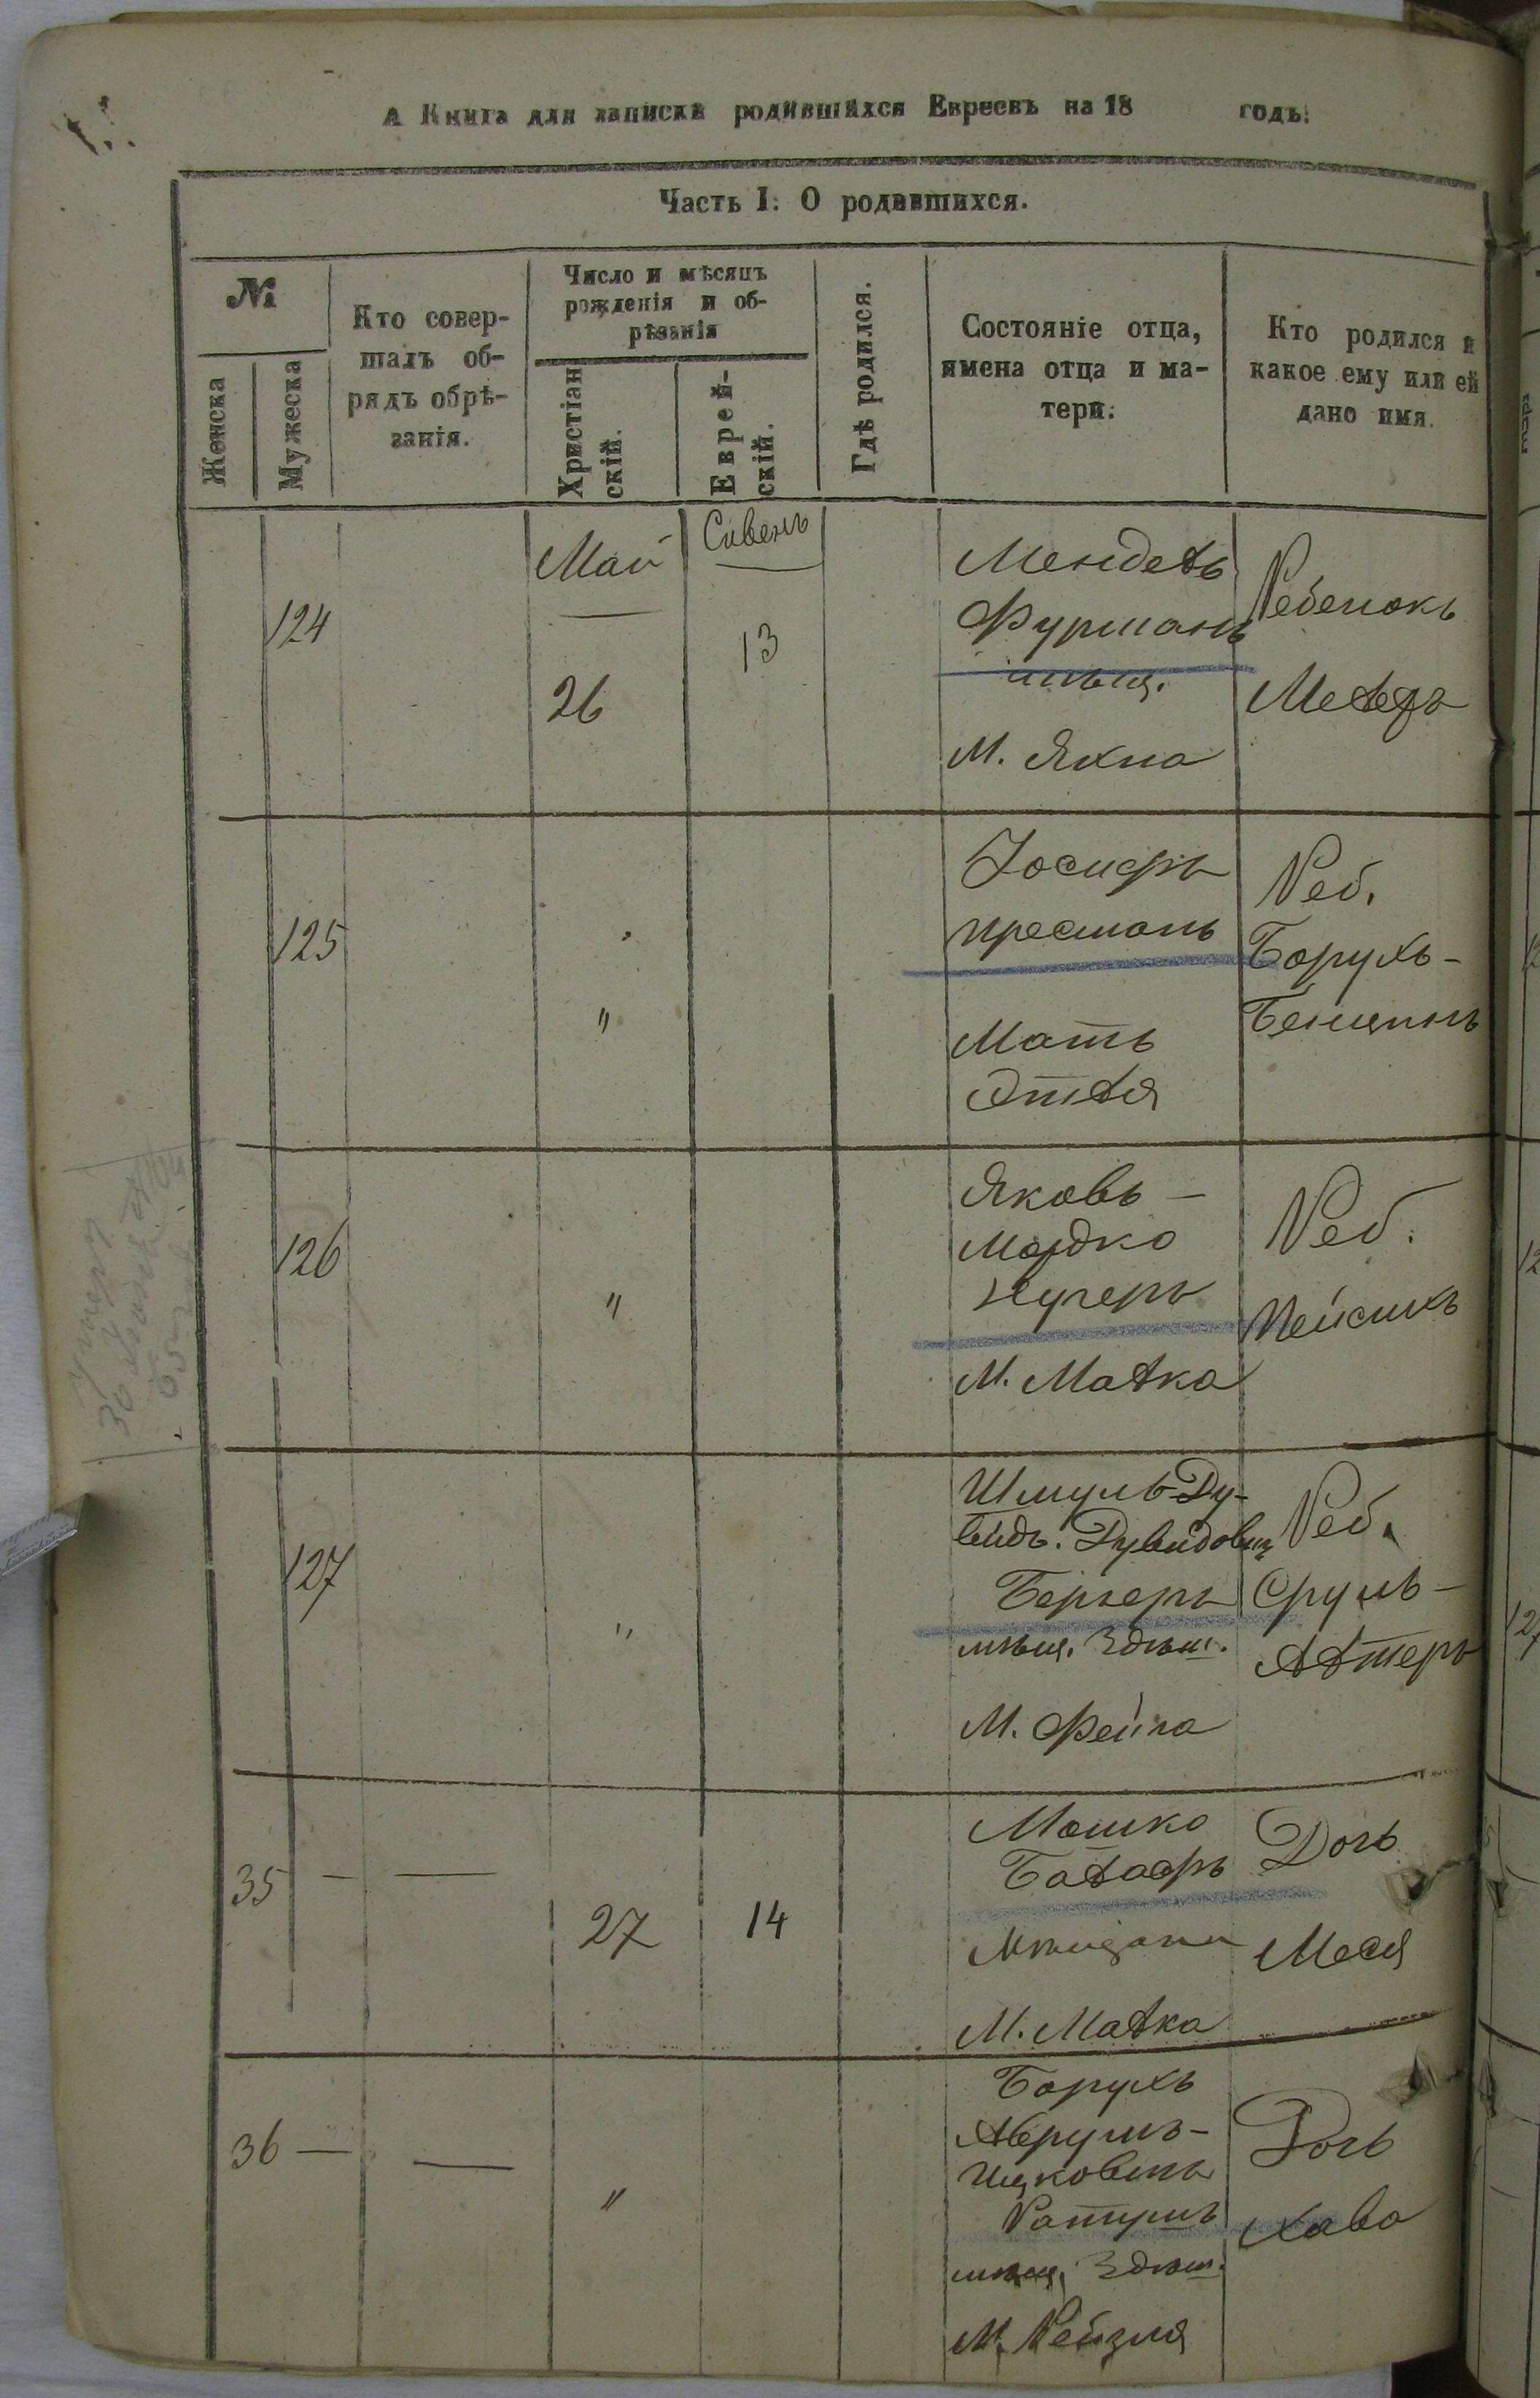 А Книга для записки родившихся Евреевъ на 18 годъ.
Часть I. О родившихся.
№
Женска
Мужеска
Кто совер-
шалъ об-
рядъ обрѣ-
занія.
Число и мѣсяцъ
рожденія и об-
рѣзанія
Христіан
скій.
Еврей-
скій.
Гдѣ родился.
Состояніе отца,
имена отца и ма-
тери.
Кто родился и
какое ему или ей
дано имя.
124
Май
26
Сивенъ
13
Мендель
Фурманъ
мѣщ.
М. Яхна
Ребенокъ
Мелехъ
125
"
Іосифъ
Пресманъ
Мать
Этля
Реб.
Борухъ-
Бенціонъ
126
"
Яковъ-
Мордко
Кучеръ
М. Малка
Реб.
Пейсихъ
127
"
Шмуль-Ду-
видъ. Дувидов
Бергеръ
мѣщ. Здѣш.
М. Фейга
Реб.
Сруль-
Алтеръ
35 — —
27
14
Мошко
М. Малка
Дочь
Меся
36 — —
"
Борухъ
Аврумъ-
Ицковичъ
Ратушъ
мѣщ. Здѣш.
М. Рейзля
Дочь
Хава
Умеръ